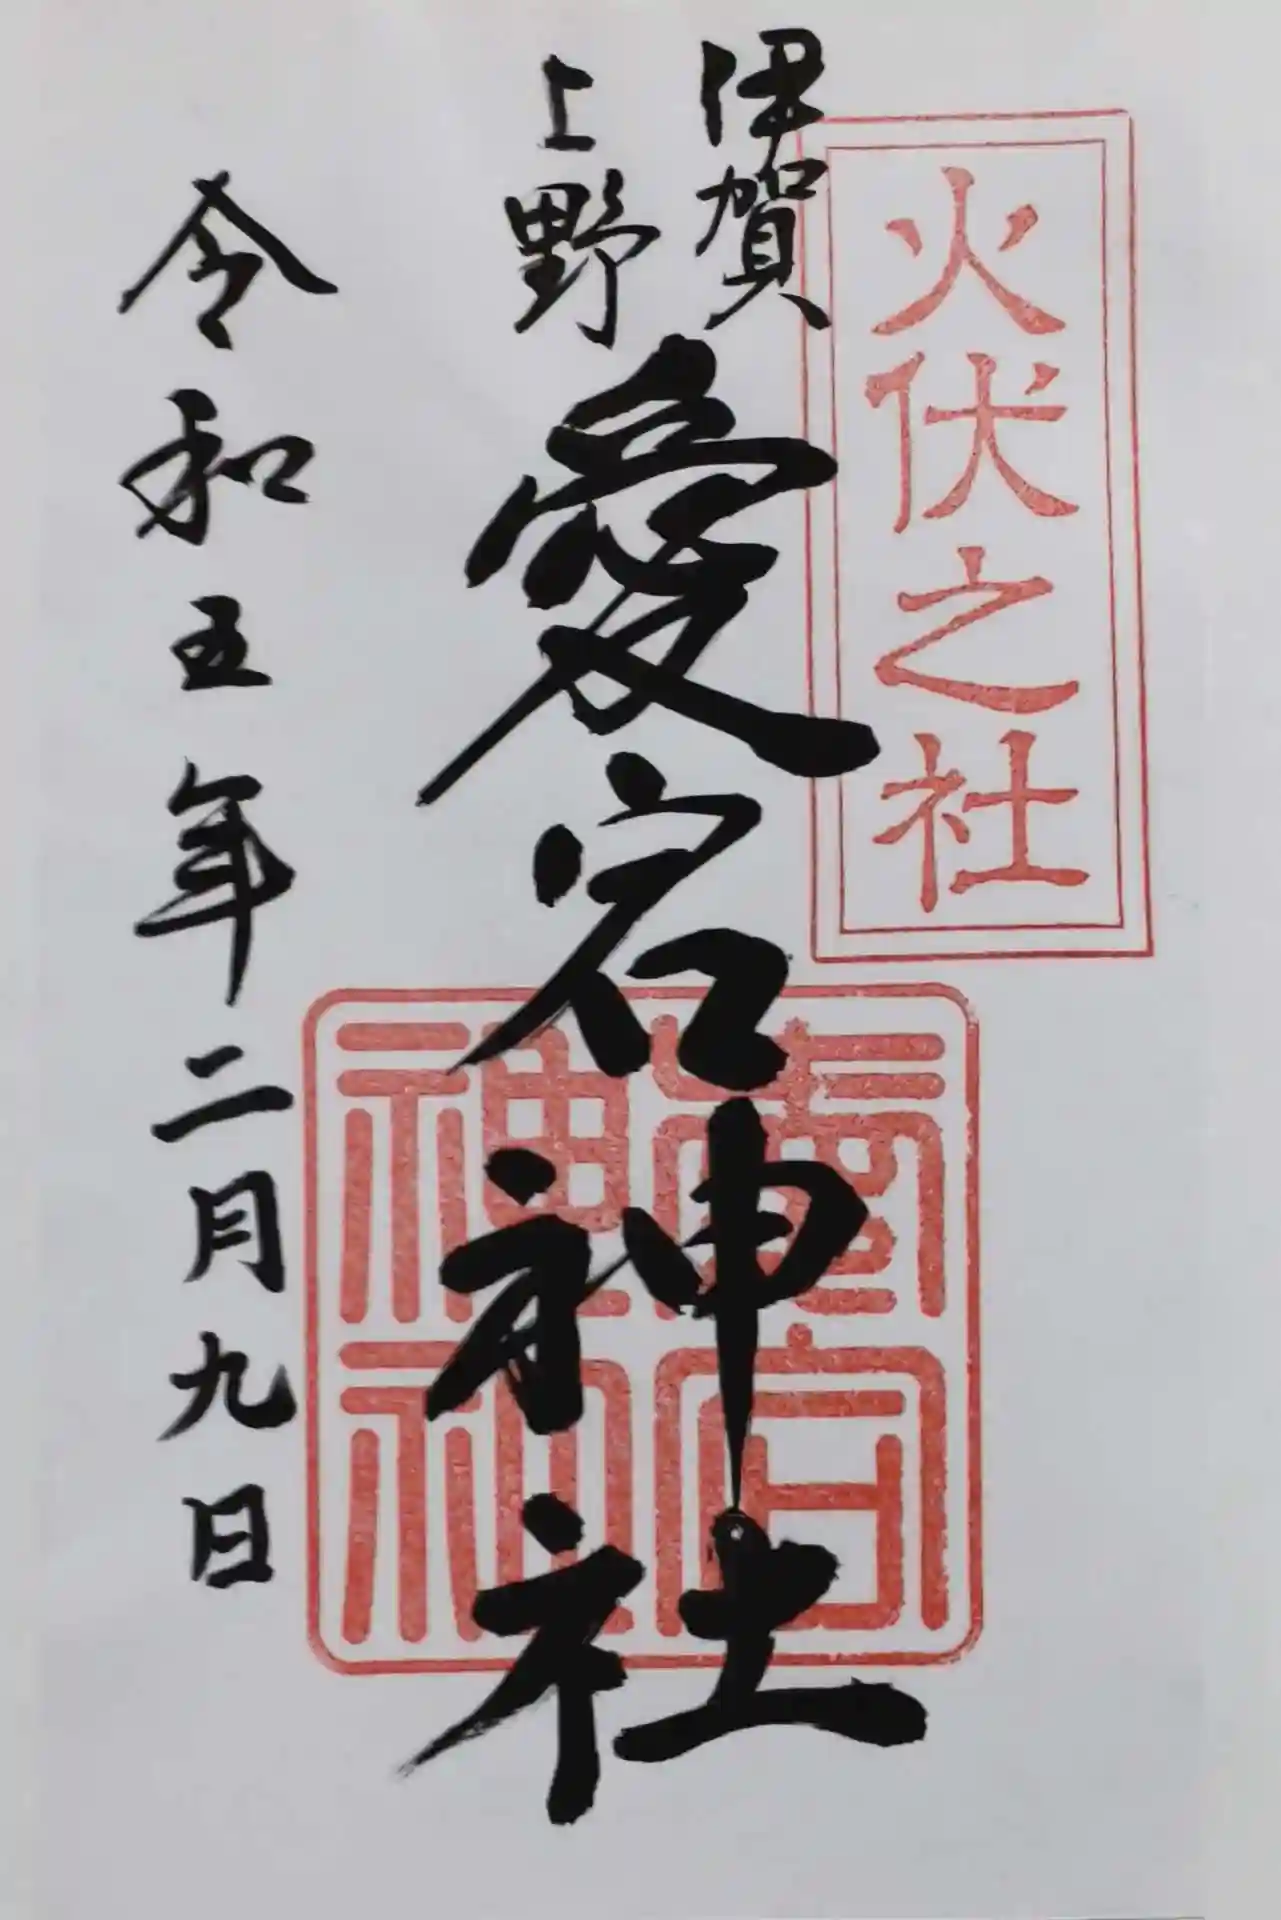 火伏之社
伊賀
上野
愛宕神社
愛宕
神社
令和五年二月九日